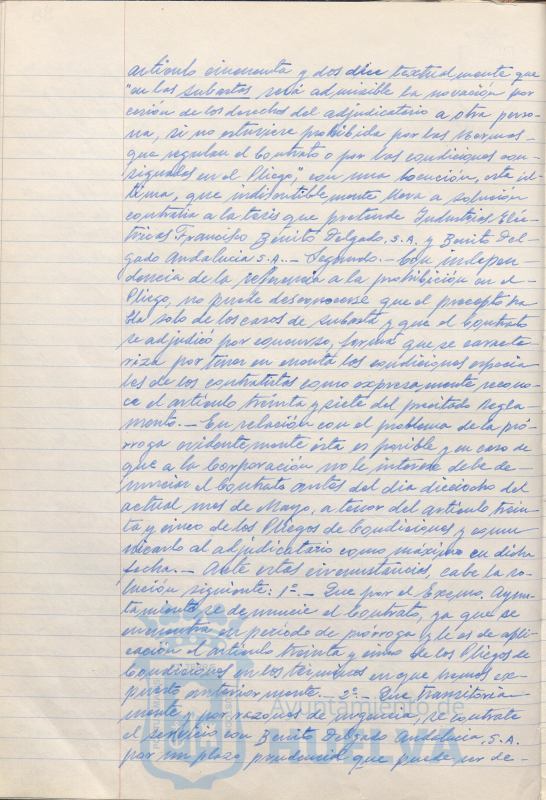 artículo cincuenta y dos dice textualmente que
"en las subastas será admisible la novación por
cesión de los derechos del adjudicatario a otra perso-
na, si no estuviere prohibida por las Normas
que regulan el Contrato o por las condiciones con-
signadas en el Pliego", con una locución, esta úl-
tima, que indiscutiblemente lleva a solución
contraria a la tesis que pretende Industrias Eléc-
tricas Francisco Benito Delgado, S.A. y Benito Del-
gado Andalucía S.A. - Segundo. - Con indepen-
dencia de la referencia a la prohibición en el
Pliego, no puede desconocerse que el precepto ha-
bla solo de los casos de subasta y que el Contrato
se adjudicó por concurso, forma que se caracte-
riza por tener en cuenta las condiciones especia-
les de los contratistas como expresamente recono-
ce el artículo treinta y siete del precitado Regla-
mento. - En relación con el problema de la pró-
rroga evidentemente ésta es posible y en caso de
que a la Corporación no le interese debe de-
nunciar el Contrato antes del día dieciocho del
actual mes de Mayo, a tenor del artículo trein-
ta y cinco de los Pliegos de Condiciones y comu-
nicarlo al adjudicatario como máximo en dicha
fecha. - Ante estas circunstancias, cabe la so-
lución siguiente: 1º. - Que por el Excmo. Ayun-
tamiento se denuncie el Contrato, ya que se
encuentra en período de prórroga y le es de apli-
cación el artículo treinta y cinco de los Pliegos de
Condiciones en los términos en que hemos ex-
puesto anteriormente. - 2º. - Que transitoria-
mente y por razones de urgencia, se contrate
el servicio con Benito Delgado Andalucía, S.A.
por un plazo prudencial que puede ser de-
Ayuntamiento de
HUELVA